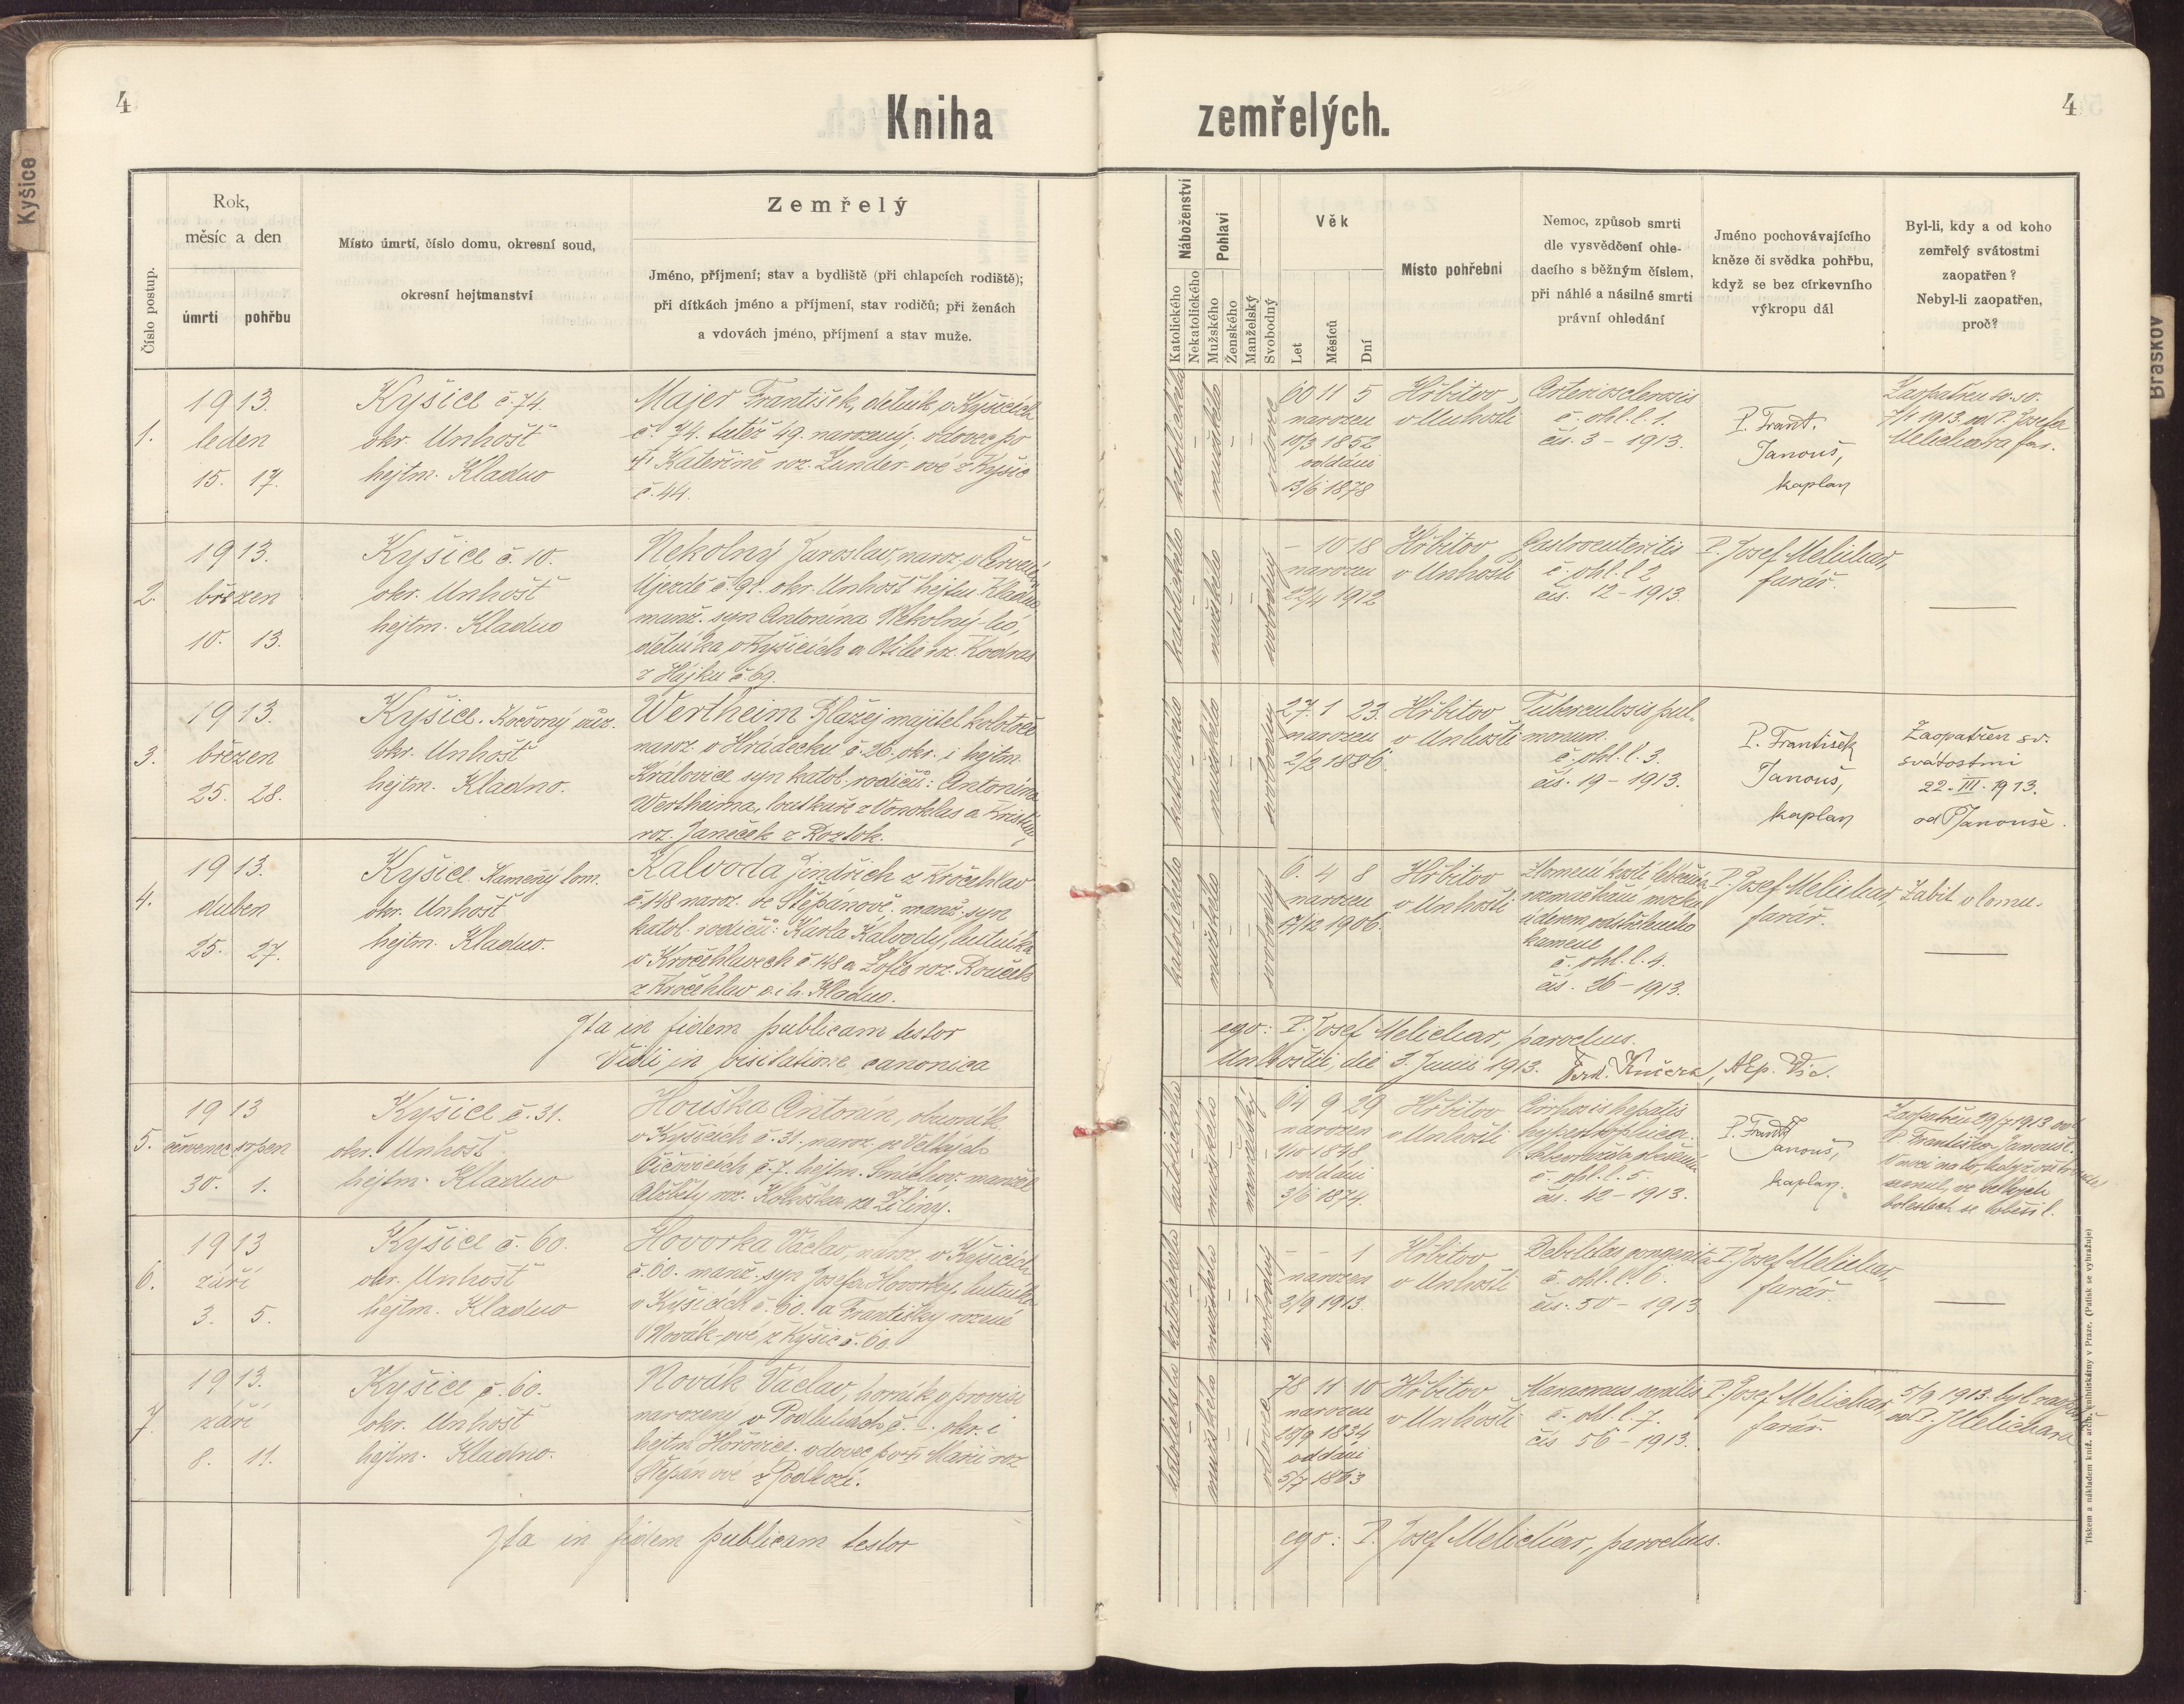 4
Kniha
zemřelých.
4
Kyšice
Braškov
Číslo postup.
Rok,
měsíc a den
úmrtí
pohřbu
Místo úmrtí, číslo domu, okresní soud,
okresní hejtmanství
Zemřelý
Jméno, příjmení; stav a bydliště (při chlapcích rodiště);
při dítkách jméno a příjmení, stav rodičů; při ženách
a vdovách jméno, příjmení a stav muže.
Náboženství
Katolického
Nekatolického
Pohlaví
Mužského
Ženského
Manželský
Svobodný
Věk
Let
Měsíců
Dní
Místo pohřební
Nemoc, způsob smrti
dle vysvědčení ohle-
dacího s běžným číslem,
při náhlé a násilné smrti
právní ohledání
Jméno pochovávajícího
kněze či svědka pohřbu,
když se bez církevního
výkropu dál
Byl-li, kdy a od koho
zemřelý svátostmi
zaopatřen?
Nebyl-li zaopatřen,
proč?
1.
1913.
leden
15. 17.
Kyšice č. 74.
okr. Unhošť
hejtm. Kladno
Majer František, dělník v Kyšicích
č. 74. tutéž 49. narozený; vdovec po
† Kateřině roz. Zunder-ové z Kyšic
č. 44.
katolického
mužského
vdovec
60 11 5
narozen
10/2 1852
oddáni
13/6 1878
Hřbitov
v Unhošti
Arteriosclerosis
č. ohl. l. 1.
čís. 3 - 1913.
P. Frant.
Janouš,
kaplan
Zaopatřen sv. sv.
7/1 1913. od P. Josefa
Melichara far.
2.
1913.
březen
10. 13.
Kyšice č. 10.
okr. Unhošť
hejtm. Kladno
Nekolný Jaroslav, naroz. v Červeném
Újezdě č. 91. okr. Unhošť hejtm. Kladno
manž. syn Antonína Nekolný-ho,
dělníka v Kyšicích a Otilie roz. Kodras
z Hájku č. 69.
katolického
mužského
svobodný
- 10 18
narozen
22/4 1912
Hřbitov
v Unhošti
Gastroenteritis
č. ohl. l. 2
čís. 12 - 1913.
P. Josef Melichar,
farář.
3.
1913.
březen
25. 28.
Kyšice. Kočovný vůz.
okr. Unhošť
hejtm. Kladno.
Wertheim Blažej majitel kolotoče
naroz. v Hrádecku č. 26. okr. i hejtm.
Královice syn katol. rodičů: Antonína
Wertheima, loutkaře z Vonoklas a Kristiny
roz. Janeček z Roztok.
katolického
mužského
svobodný
27. 1 23.
narozen
2/2 1886.
Hřbitov
v Unhošti
Tuberculosis pul-
monum.
č. ohl. l. 3.
čís. 19 - 1913.
P. František
Janouš,
kaplan
Zaopatřen sv.
svátostmi
22. III. 1913.
od P Janouše.
4.
1913.
duben
25. 27.
Kyšice. Kamenný lom.
okr. Unhošť
hejtm. Kladno.
Kalvoda Jindřich z Kročehlav
č. 148 naroz. ve Štěpánově. manž. syn
katol. rodičů: Karla Kalvody, hutníka
v Kročehlavech č. 148 a Žofie roz. Rouček
z Kročehlav o. i h. Kladno.
katolického
mužského
svobodný
6. 4 8
narozen
17/12 1906.
Hřbitov
v Unhošti
Zlomení kostí lebečních
rozmačkání mozku
úderem odstřeleného
kamene
č. ohl. l. 4.
čís. 26 - 1913.
P. Josef Melichar,
farář.
Zabit v lomu.
Ita in fidem publicam testor
ego: P. Josef Melichar, parochus.
Vidi in visitatione canonica
Unhoštii, die 3. Junii 1913. Ferd. Kučera, Aep. Vic.
5.
1913
červenec srpen
30. 1.
Kyšice č. 31.
okr. Unhošť
hejtm. Kladno
Houška Antonín, obuvník
v Kyšicích č. 31. naroz. ve Velkých
Čičovicích č. 7. hejtm. Smíchov. manžel
Alžběty roz. Kohoutka ze Žiliny.
katolického
mužského
manželský
64 9 29
narozen
1/10 1848.
oddáni
3/6 1874.
Hřbitov
v Unhošti
Cirrhosis hepatis
hypertrophica.
Sebevražda oběšením
č. ohl. l. 5.
čís. 42 - 1913.
P. Frant.
Janouš,
kaplan.
Zaopatřen 29/7 1913 od
P. Františka Janouše.
V noci na to, když
usnul, ve velkých
bolestech se oběsil.
6.
1913
září
3. 5.
Kyšice č. 60.
okr. Unhošť
hejtm. Kladno
Hovorka Václav, naroz. v Kyšicích
č. 60. manž. syn Josefa Hovorky, hutníka
v Kyšicích č. 60. a Františky rozené
Novák-ové z Kyšic č. 60.
katolického
mužského
svobodný
- - 1
narozen
2/9 1913.
Hřbitov
v Unhošti
Debilitas congenita
č. ohl. l. 6.
čís. 50 - 1913
P. Josef Melichar,
farář.
7.
1913.
září
8. 11.
Kyšice č. 60.
okr. Unhošť
hejtm. Kladno.
Novák Václav, horník v provisi
narozený v Podluhách č. -. okr. i
hejtm. Hořovice. vdovec po † Marii roz
Štěpánové z Podluží.
katolického
mužského
vdovec
78 11 10
narozen
28/9 1834
oddáni
5/7 1863
Hřbitov
v Unhošti
Marasmus senilis
č. ohl. l. 7.
čís 56 - 1913.
P. Josef Melichar,
farář.
5/9 1913. byl zaopatř.
od P. J Melichara
Ita in fidem publicam testor
ego: P. Josef Melichar, parochus.
Tiskem a nákladem kníž. arcib. knihtiskárny v Praze. (Patisk se vyhražuje)